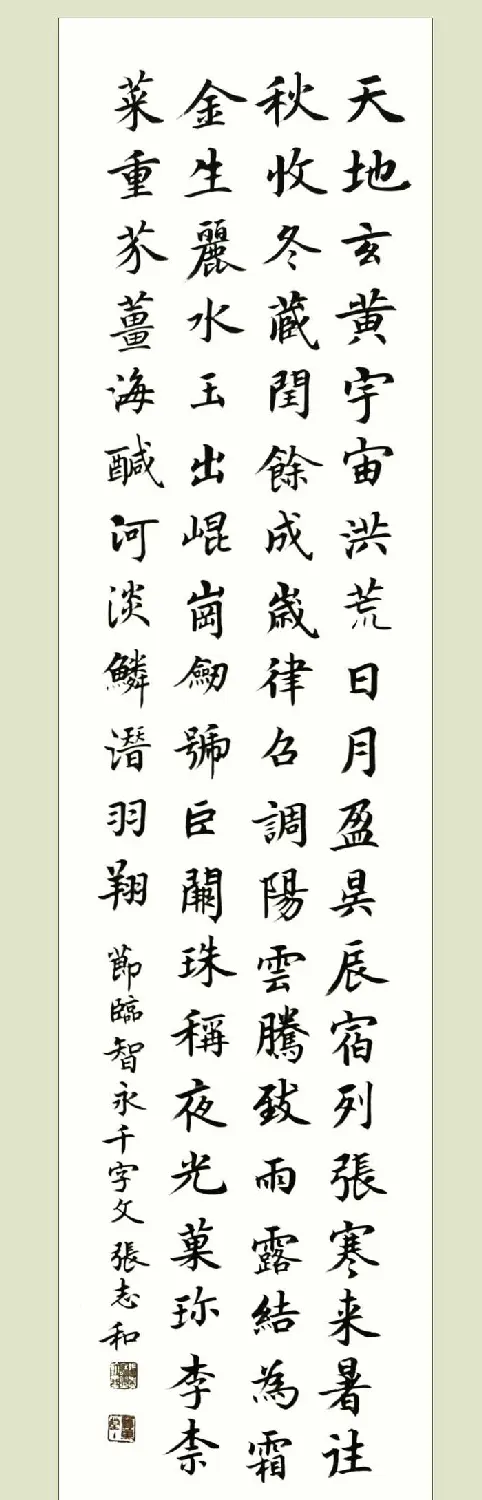 天地玄黄宇宙洪荒日月盈昃辰宿列張寒来暑往
秋收冬藏閏餘成歲律召調陽雲騰致雨露結為霜
金生麗水玉出崐崗劒號巨闕珠稱夜光菓珎李柰
菜重芥薑海醎河淡鱗潛羽翔 節臨智永千字文 張志和